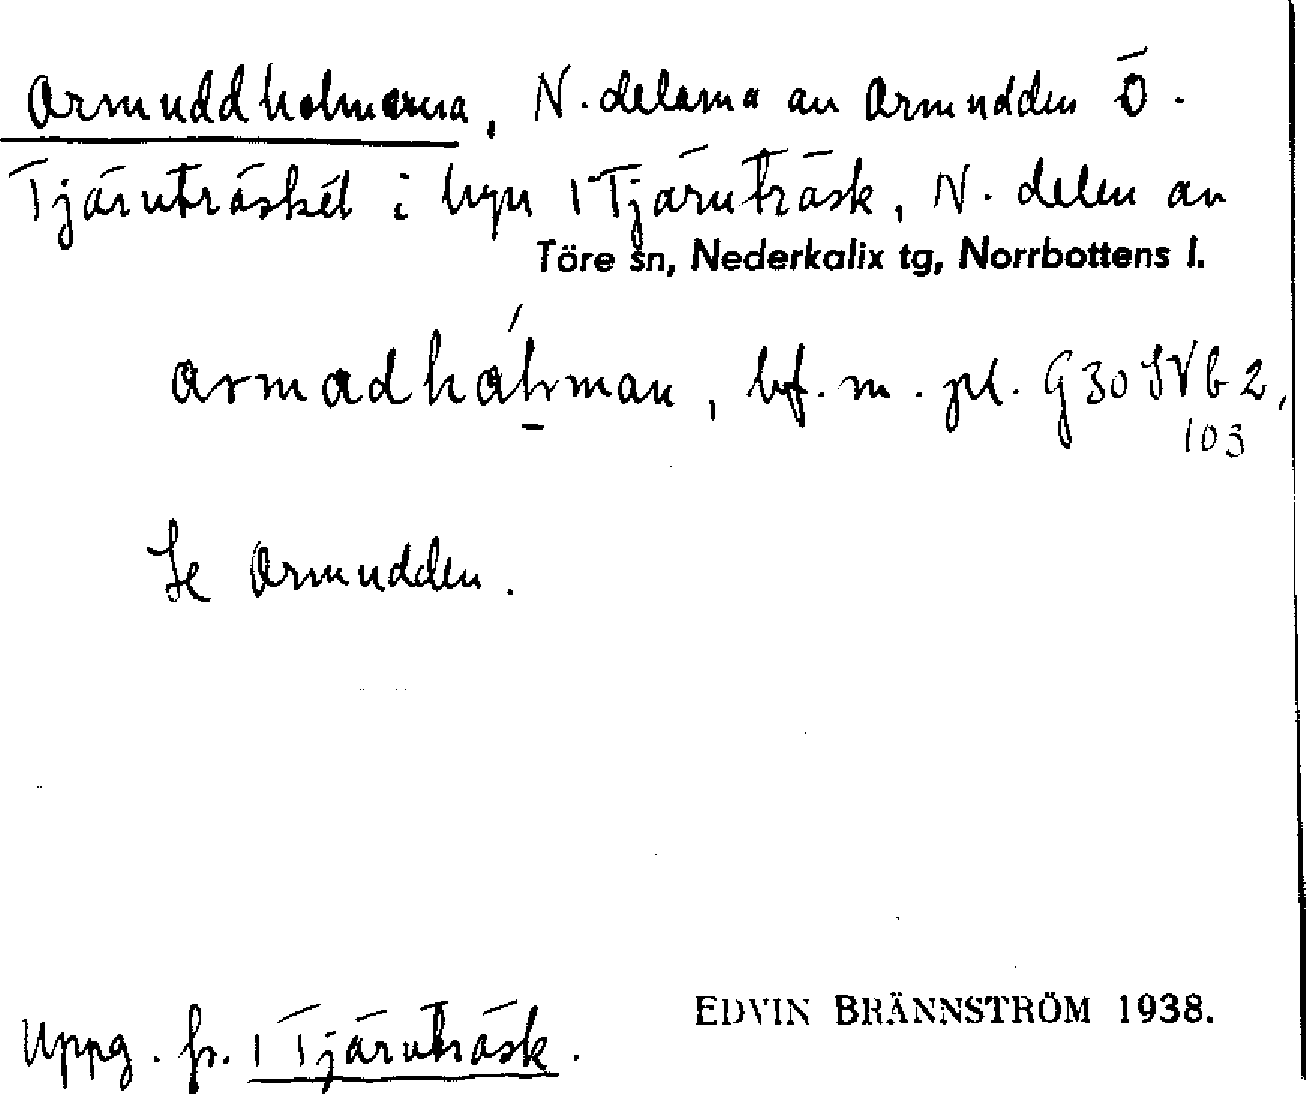 Armuddholmarna, N. delarna av Armudden Ö.
Tjäruträsket i byn 1 Tjäruträsk, N. delen av
Töre sn, Nederkalix tg, Norrbottens l.
armadhálman, bf. m. pl. G 30 SV b 2,
103
Se Armudden.
EDVIN BRÄNNSTRÖM 1938.
Uppg. fr. 1 Tjäruträsk.